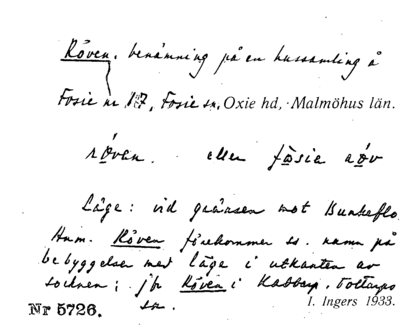 Röven, benämning på en hussamling å
Fosie nr 17, Fosie sn, Oxie hd, Malmöhus län.
röven. eller fosie röv
Läge: vid gränsen mot Bunkeflo
Anm. Röven förekommer so. namn på
bebyggelser med läge i utkanten av
socknen; jfr Röven i Kabbarp, Tottarps
sn.
I. Ingers 1933.
Nr 5726.